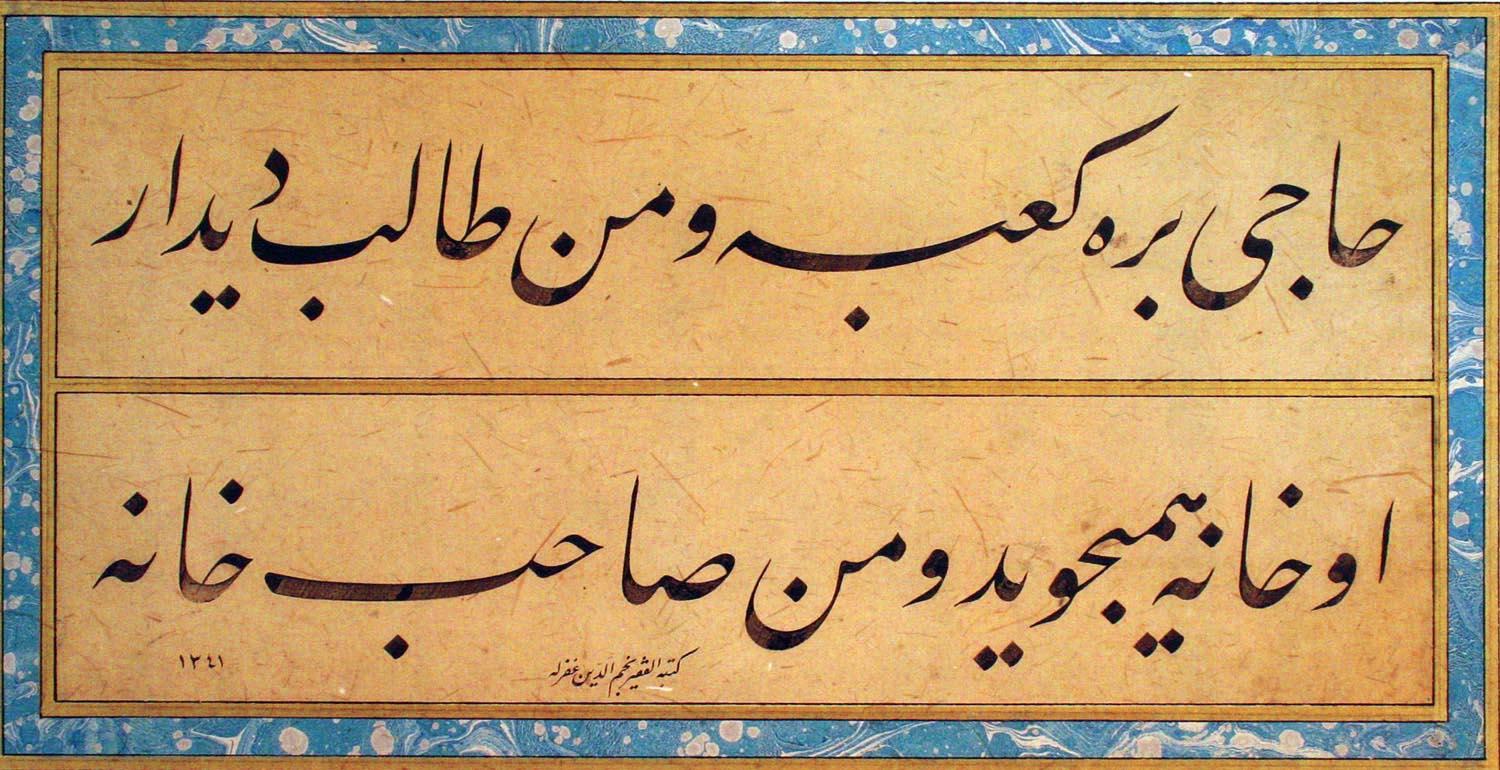 حاجی بره کعبه و من طالب دیدار
او خانه همیجوید و من صاحب خانه
کتبه الفقیر نجم الدین غفرله
١٣٤١